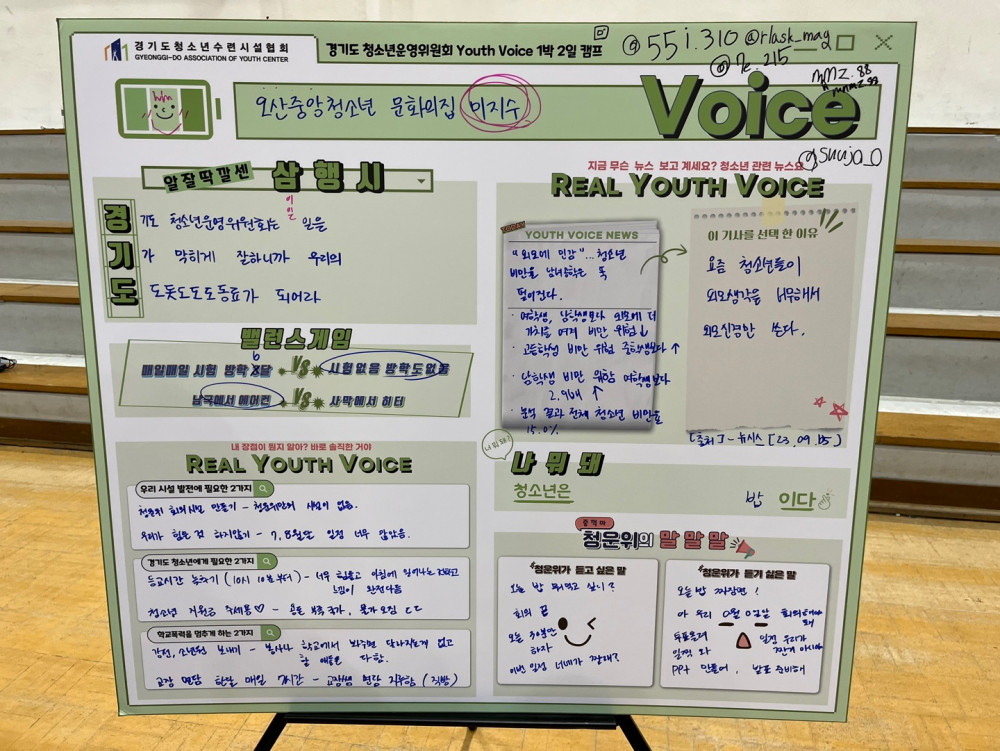 경기도청소년수련시설협회
GYEONGGI-DO ASSOCIATION OF YOUTH CENTER
경기도 청소년운영위원회 Youth Voice 1박 2일 캠프
@55i.310 @rlask_mag
@7e.215
nmz.88
@suuja_0
오산중앙청소년 문화의집 미지수
Voice
알잘딱깔센 삼행시
경 기도 청소년운영위원회는 일을
기 가 막히게 잘하니까 우리의
도 도돗도도도동료가 되어라
밸런스게임
매일매일 시험 방학 6달 VS 시험없음 방학도없음
남극에서 에어컨 VS 사막에서 히터
지금 무슨 뉴스 보고 계세요? 청소년 관련 뉴스요
REAL YOUTH VOICE
TODAY
YOUTH VOICE NEWS
"외모에 민감"...청소년
비만율 남녀중학은 뚝
떨어진다.
· 여학생, 남학생보다 외모에 더
가치를 여겨 비만 위험↓
· 고등학생 비만 위험 중학생보다 ↑
· 남학생 비만 위험 여학생보다
2.9배 ↑
· 분석 결과 전체 청소년 비만율
15.0%
이 기사를 선택 한 이유
요즘 청소년들이
외모생각을 너무해서
외모신경만 쓴다.
[출처] - 뉴시스 [23.09.15]
내 장점이 뭔지 알아? 바로 솔직한 거야
REAL YOUTH VOICE
우리 시설 발전에 필요한 2가지
청운위 회의시설 만들기 - 청운위만의 시설이 없음.
우리가 힘든 것 하지않기 - 7, 8월은 일정 너무 많았음.
경기도 청소년에게 필요한 2가지
등교시간 늦추기 (10시 10분부터) - 너무 힘들고 아침에 일어나는
느낌이 완전다름
청소년 지원금 주세용♡ - 물가 오름 ㄷㄷ
학교폭력을 멈추게 하는 2가지
감전, 소년원 보내기 - 봉사나 학교에서 없고
할 애들은 다함.
교장 면담 한달 매일 7시간 - 교장쌤 면담 지루함 (직빵)
나 뭐 돼?
나 뭐 돼
청소년은 밥 이다
중꺾마
청운위의 말 말 말
청운위가 듣고 싶은 말
오늘 밥 뭐먹고 싶니?
회의 끝
오늘 30분만
하자
이번 일정 너네가 짤래?
청운위가 듣기 싫은 말
오늘밥 짜장면!
아 우리 0월 0일날 회의해야
돼
투표용지
일찍 와
일정 우리가
PPT 만들어, 발표 준비해